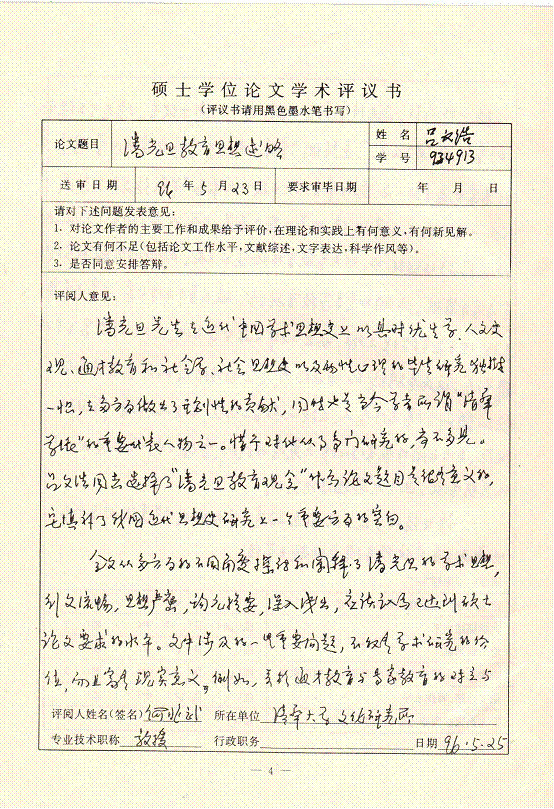 硕士学位论文学术评议书
(评议书请用黑色墨水笔书写)
论文题目 潘光旦教育思想述略 姓名 吕文浩
学号 934913
送审日期 96年5月23日 要求审毕日期 年 月 日
请对下述问题发表意见:
1. 对论文作者的主要工作和成果给予评价,在理论和实践上有何意义,有何新见解。
2. 论文有何不足(包括论文工作水平,文献综述,文字表达,科学作风等)。
3. 是否同意安排答辩。
评阅人意见:
潘光旦先生在近代中国学术思想史上以其对优生学、人文史
观、通才教育和社会学、社会思想史以及性心理的毕生研究独树
一帜,在多方面做出了重要性的贡献,同时也是当今学者所谓“清华
学派”的重要代表人物之一。惜乎对他从事专门研究的,尚不多见。
吕文浩同志选择了“潘光旦教育观念”作为论文题目是很有意义的,
它填补了我国近代思想史研究上一个重要方面的空白。
全文从多方面的不同角度探讨和阐释了潘光旦的学术思想,
行文流畅,思想严密,论充扼要,深入浅出,应该认为已达到硕士
论文要求的水平。文中涉及的一些重要问题,不仅有学术研究的价
值,而且富有现实意义。例如,关于通才教育与专家教育的对立与
评阅人姓名(签名) 何兆武 所在单位 清华大学文化研究所
专业技术职称 教授 行政职务 日期 96.5.25
— 4 —